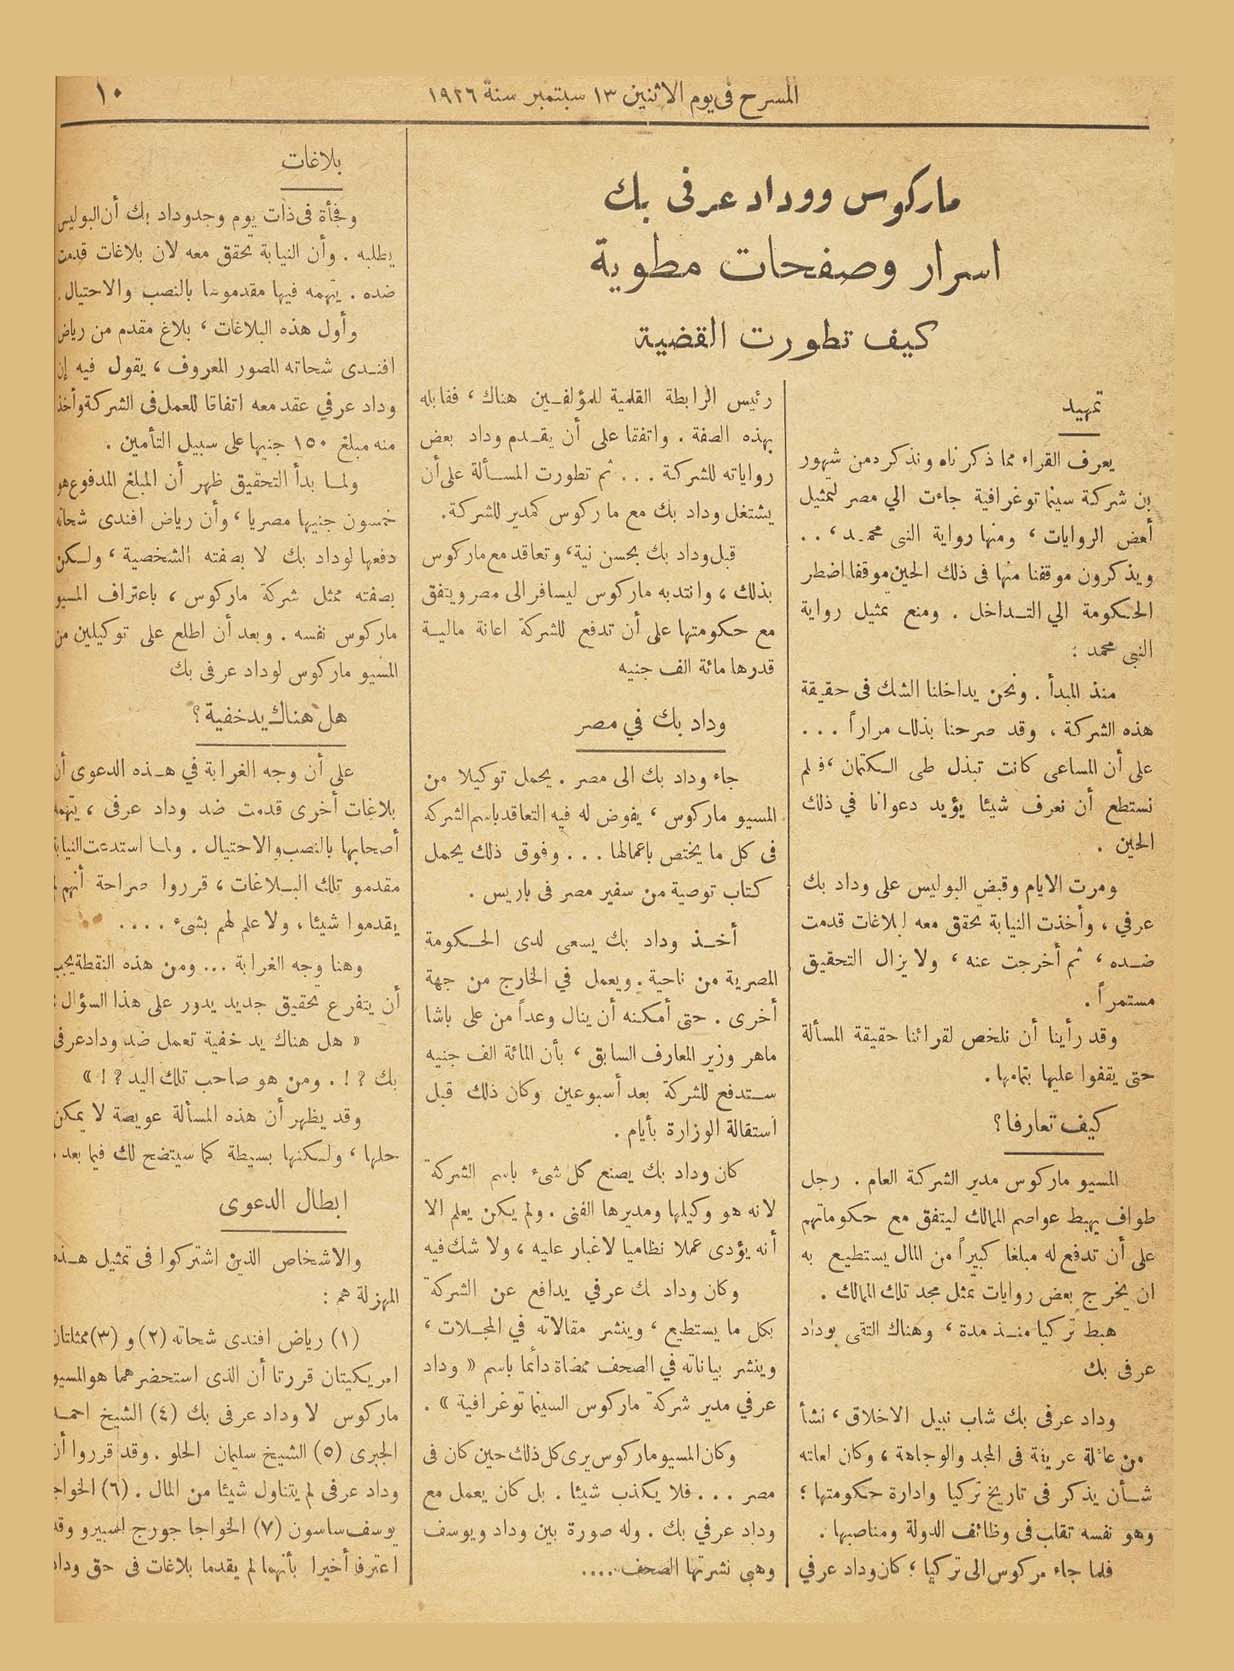 المسرح فى يوم الاثنين ١٣ سبتمبر سنة ١٩٢٦
١٠
ماركوس ووداد عرفى بك
اسرار وصفحات مطوية
كيف تطورت القضية
تمهيد
يعرف القراء مما ذكرناه ونذكره من شهور
بن شركة سينما توغرافية جاءت الي مصر لتمثيل
أعض الروايات ، ومنها رواية النبى محمد ، . .
ويذكرون موقفنا منها فى ذلك الحين موقفا اضطر
الحكومة الي التداخل . ومنع تمثيل رواية
النبى محمد :
منذ المبدأ . ونحن يداخلنا الشك فى حقيقة
هذه الشركة ، وقد صرحنا بذلك مراراً . . .
على أن المساعى كانت تبذل طى الكتمان ، فلم
نستطع أن نعرف شيئا يؤيد دعوانا في ذلك
الحين .
ومرت الايام وقبض البوليس على وداد بك
عرفي ، وأخذت النيابة تحقق معه لبلاغات قدمت
ضده ، ثم أخرجت عنه ، ولا يزال التحقيق
مستمراً .
وقد رأينا أن نلخص لقرائنا حقيقة المسألة
حتى يقفوا عليها بتمامها .
كيف تعارفا ؟
المسيو ماركوس مدير الشركة العام . رجل
طواف يهبط عواصم الممالك ليتفق مع حكوماتهم
على أن تدفع له مبلغا كبيراً من المال يستطيع به
ان يخرج بعض روايات تمثل مجد تلك الممالك .
هبط تركيا منذ مدة ، وهناك التقى بوداد
عرفى بك
وداد عرفى بك شاب نبيل الاخلاق ، نشأ
من عائلة عريقة فى المجد والوجاهة ، وكان لعائلته
شأن يذكر فى تاريخ تركيا وادارة حكومتها ؛
وهو نفسه تقلب فى وظائف الدولة ومناصبها .
فلما جاء مركوس الى تركيا ؛ كان وداد عرفي
رئيس الرابطة القلمية للمؤلفين هناك ، فقابله
بهذه الصفة . واتفقا على أن يقدم وداد بعض
رواياته للشركة . . . ثم تطورت المسألة على أن
يشتغل وداد بك مع ماركوس كمدير للشركة .
قبل وداد بك بحسن نية ، وتعاقد مع ماركوس
بذلك ، وانتدبه ماركوس ليسافر الى مصر ويتفق
مع حكومتها على أن تدفع للشركة اعانة مالية
قدرها مائة الف جنيه
وداد بك في مصر
جاء وداد بك الى مصر . يحمل توكيلا من
المسيو ماركوس ، يفوض له فيه التعاقد باسم الشركه
فى كل ما يختص باعمالها . . . وفوق ذلك يحمل
كتاب توصية من سفير مصر فى باريس .
أخذ وداد بك يسعى لدى الحكومة
المصرية من ناحية . ويعمل في الخارج من جهة
أخرى . حتى أمكنه أن ينال وعداً من على باشا
ماهر وزير المعارف السابق ، بأن المائة الف جنيه
ستدفع للشركة بعد أسبوعين وكان ذلك قبل
استقالة الوزارة بأيام .
كان وداد بك يصنع كل شىء باسم الشركة
لانه هو وكيلها ومديرها الفنى . ولم يكن يعلم الا
أنه يؤدى عملا نظاميا لا غبار عليه ، ولا شك فيه
وكان وداد بك عرفي يدافع عن الشركة
بكل ما يستطيع ، وينشر مقالاته في المجلات ،
وينشر بياناته في الصحف ممضاة دائما باسم « وداد
عرفي مدير شركة ماركوس السينما توغرافية » .
وكان المسيو ماركوس يرى كل ذلك حين كان فى
مصر . . . فلا يكذب شيئا . بل كان يعمل مع
وداد عرفي بك . وله صورة بين وداد ويوسف
وهبى نشرتها الصحف ....
بلاغات
وفجأة فى ذات يوم وجد وداد بك أن البوليس
يطلبه . وأن النيابة تحقق معه لان بلاغات قدمت
ضده . يتهمه فيها مقدموها بالنصب والاحتيال .
وأول هذه البلاغات ، بلاغ مقدم من رياض
افندى شحاته المصور المعروف ، يقول فيه إن
وداد عرفي عقد معه اتفاقا للعمل فى الشركة وأخذ
منه مبلغ ١٥٠ جنيها على سبيل التأمين .
ولما بدأ التحقيق ظهر أن المبلغ المدفوع هو
خمسون جنيها مصريا ، وأن رياض افندى شحاته
دفعها لوداد بك لا بصفته الشخصية ، ولكن
بصفته ممثل شركة ماركوس ، باعتراف المسيو
ماركوس نفسه . وبعد أن اطلع على توكيلين من
المسيو ماركوس لوداد عرفى بك
هل هناك يد خفية ؟
على أن وجه الغرابة في هذه الدعوى أن
بلاغات أخرى قدمت ضد وداد عرفى ، يتهمه
أصحابها بالنصب والاحتيال . ولما استدعت النيابة
مقدمو تلك البلاغات ، قرروا صراحة أنهم لم
يقدموا شيئا ، ولا علم لهم بشىء . . . .
وهنا وجه الغرابة ... ومن هذه النقطة يجب
أن يتفرع تحقيق جديد يدور على هذا السؤال :
« هل هناك يد خفية تعمل ضد وداد عرفى
بك ? ! . ومن هو صاحب تلك اليد ? ! »
وقد يظهر أن هذه المسألة عويصة لا يمكن
حلها ، ولكنها بسيطة كما سيتضح لك فيما بعد .
ابطال الدعوى
والاشخاص الذين اشتركوا فى تمثيل هذه
المهزلة هم :
(١) رياض افندى شحاته (٢) و (٣) ممثلتان
امريكيتان قررتا أن الذى استحضرهما هو المسيو
ماركوس لا وداد عرفى بك (٤) الشيخ احمد
الجبرى (٥) الشيخ سليمان الحلو . وقد قرروا أن
وداد عرفى لم يتناول شيئا من المال . (٦) الخواجا
يوسف ساسون (٧) الخواجا جورج اسبيرو وقد
اعترفا أخيرا بأنهما لم يقدما بلاغات فى حق وداد